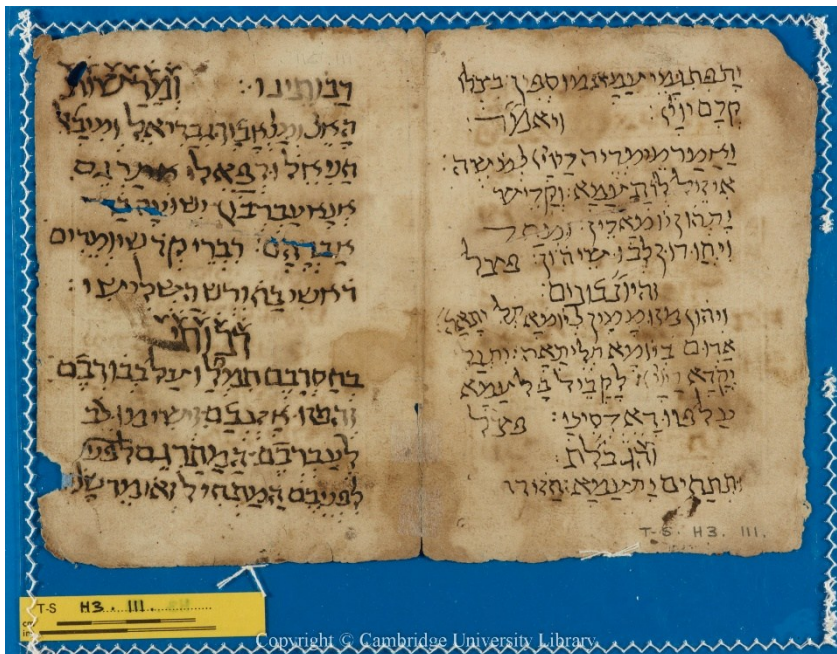 ית פתגמי עמא מוספין בצלו
קדם יוי ויאמר
ואמר מימריה דייי למשה
איזיל לות עמא וקדיש
יתהון יומא דין ומחר
ויחורון לבושיהון פצל
והיו נכונים
ויהון מזומנין ליומא תליתאה
ארום ביומא תליתאה יתגלי
יקרא לקביל כל עמא
על טוורא דסיני פצל
והגבלת
ותתחים ית עמא חזור
T-S. H3. 111.
רבותינו ומרשות
האל ומלאכיו גבריאל ומיכאל
חניאל ורפאל אתרגם
אנא עבדכון ישועה בר
אברהם דברי קדש יומרים
ראשי בחודש השלישי
רבותי
בחסדכם ועל כבודכם
והטו אזנכם ושימו לב
לעבדכם המתרגם לפני
לפניכם המתחיל ואומר
T-S H3. 111.
Copyright © Cambridge University Library